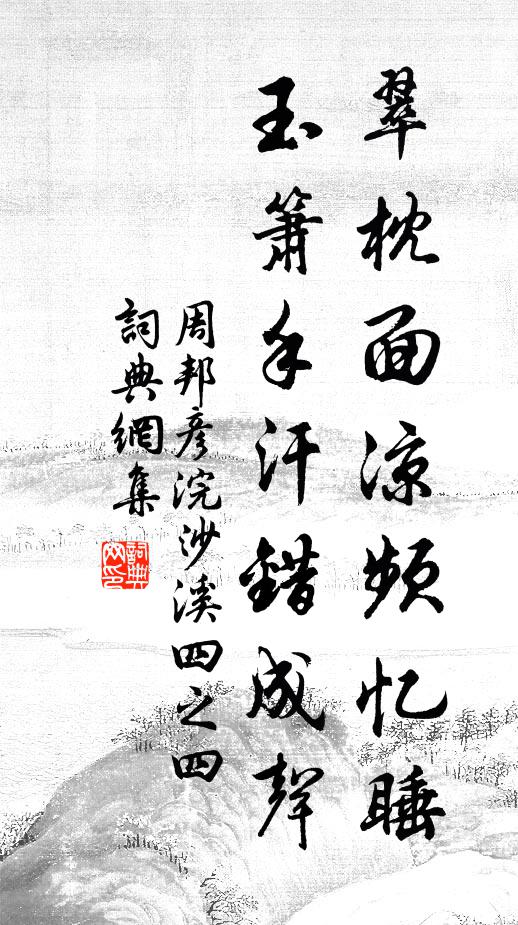 翠枕面涼頻忆睡
玉簫手汗錯成聲
周邦彦浣沙溪四之四
詞典網集
詞典网印